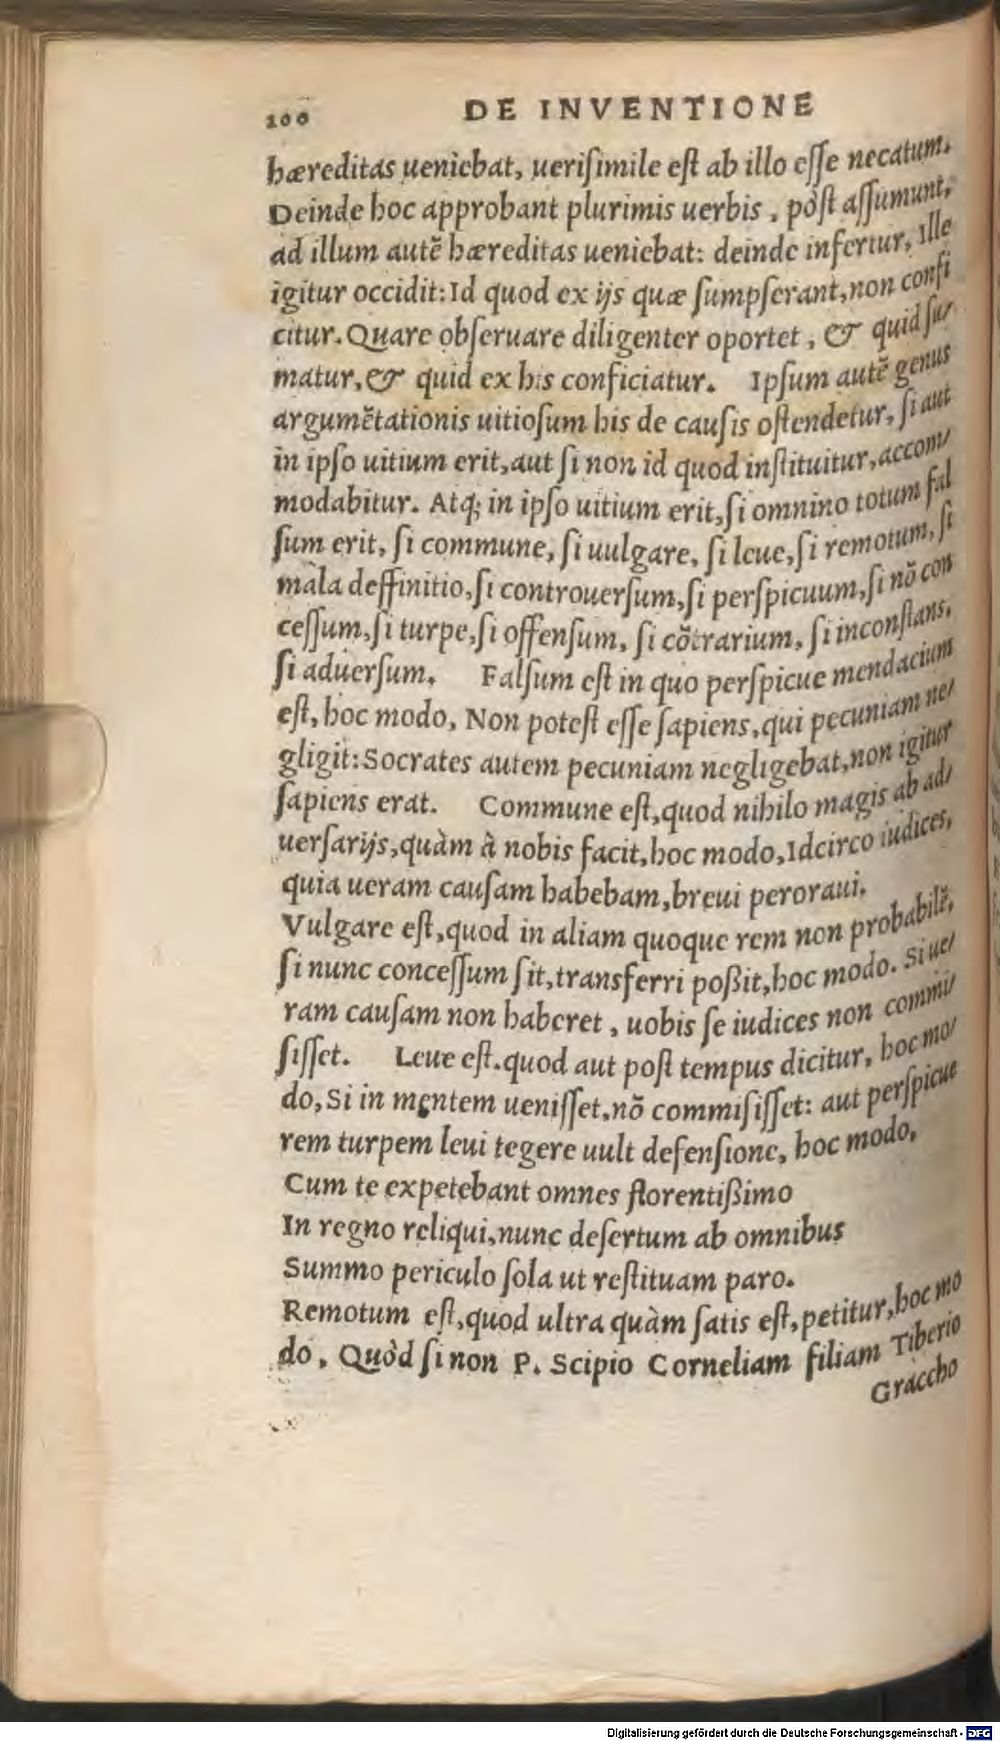 200 DE INVENTIONE
hæreditas ueniebat, ueriſimile eſt ab illo eſſe necatum.
Deinde hoc approbant plurimis uerbis, pòſt aſſumunt,
ad illum autē hæreditas ueniebat: deinde infertur, Ille
igitur occidit: Id quod ex ijs quæ ſumpſerant, non confi
citur. Quare obſeruare diligenter oportet, & quid ſu/
matur, & quid ex his conficiatur. Ipſum autē genus
argumētationis uitioſum his de cauſis oſtendetur, ſi aut
in ipſo uitium erit, aut ſi non id quod inſtituitur, accom/
modabitur. Atq; in ipſo uitium erit, ſi omnino totum fal
ſum erit, ſi commune, ſi uulgare, ſi leue, ſi remotum, ſi
mala deffinitio, ſi controuerſum, ſi perſpicuum, ſi nō con
ceſſum, ſi turpe, ſi offenſum, ſi cōtrarium, ſi inconſtans,
ſi aduerſum. Falſum eſt in quo perſpicue mendacium
eſt, hoc modo, Non poteſt eſſe ſapiens, qui pecuniam ne/
gligit: Socrates autem pecuniam negligebat, non igitur
ſapiens erat. Commune eſt, quod nihilo magis ab ad/
uerſarijs, quàm à nobis facit, hoc modo, Idcirco iudices,
quia ueram cauſam habebam, breui peroraui.
Vulgare eſt, quod in aliam quoque rem non probabilē,
ſi nunc conceſſum ſit, transferri poßit, hoc modo. Si ue/
ram cauſam non haberet, uobis ſe iudices non commi/
ſiſſet. Leue eſt. quod aut poſt tempus dicitur, hoc mo/
do, Si in mentem ueniſſet, nō commiſiſſet: aut perſpicue
rem turpem leui tegere uult defenſione, hoc modo,
Cum te expetebant omnes florentißimo
In regno reliqui, nunc deſertum ab omnibus
Summo periculo ſola ut reſtituam paro.
Remotum eſt, quod ultra quàm ſatis eſt, petitur, hoc mo
do, Quòd ſi non P. Scipio Corneliam filiam Tiberio
Graccho
Digitalisierung gefördert durch die Deutsche Forschungsgemeinschaft - DFG